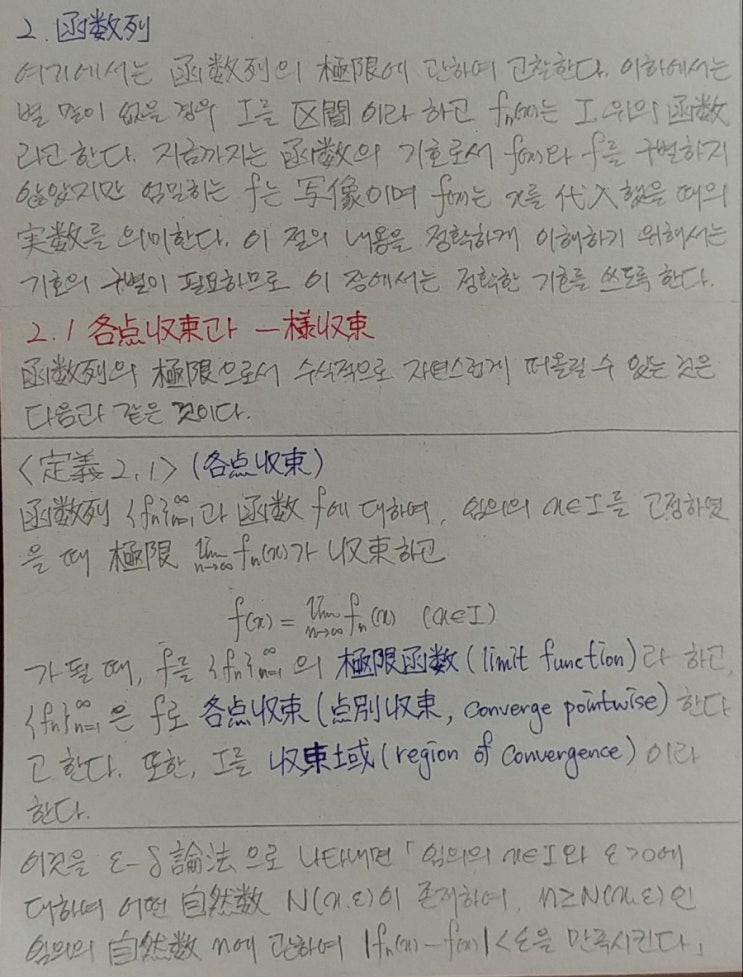 2. 函数列
여기에서는 函数列의 極限에 관하여 고찰한다. 이하에서는
별 말이 없을 경우 I를 区間이라 하고 fₙ(x)는 I 위의 函数
라고 한다. 지금까지는 函数의 기호로서 f(x)와 f를 구별하지
않았지만 엄밀히는 f는 写像이며 f(x)는 x를 代入했을 때의
実数를 의미한다. 이 절의 내용을 정확하게 이해하기 위해서는
기호의 구별이 필요하므로 이 장에서는 정확한 기호를 쓰도록 한다.
2.1 各点収束과 一様収束
函数列의 極限으로서 수식적으로 자연스럽게 떠올릴 수 있는 것은
다음과 같은 것이다.
<定義 2.1> (各点収束)
函数列 {fₙ}ₙ₌₁^∞과 函数 f에 대하여, 임의의 x∈I를 고정하였
을 때 極限 lim_{n→∞} fₙ(x)가 収束하고
f(x) = lim_{n→∞} fₙ(x) (x∈I)
가 될 때, f를 {fₙ}ₙ₌₁^∞의 極限函数(limit function)라 하고,
{fₙ}ₙ₌₁^∞은 f로 各点収束(点別収束, converge pointwise)한다
고 한다. 또한, I를 収束域(region of convergence)이라
한다.
이것을 ε-δ 論法으로 나타내면 「임의의 x∈I와 ε>0에
대하여 어떤 自然数 N(x,ε)이 존재하여, n≥N(x,ε)인
임의의 自然数 n에 관하여 |fₙ(x)-f(x)|<ε을 만족시킨다」